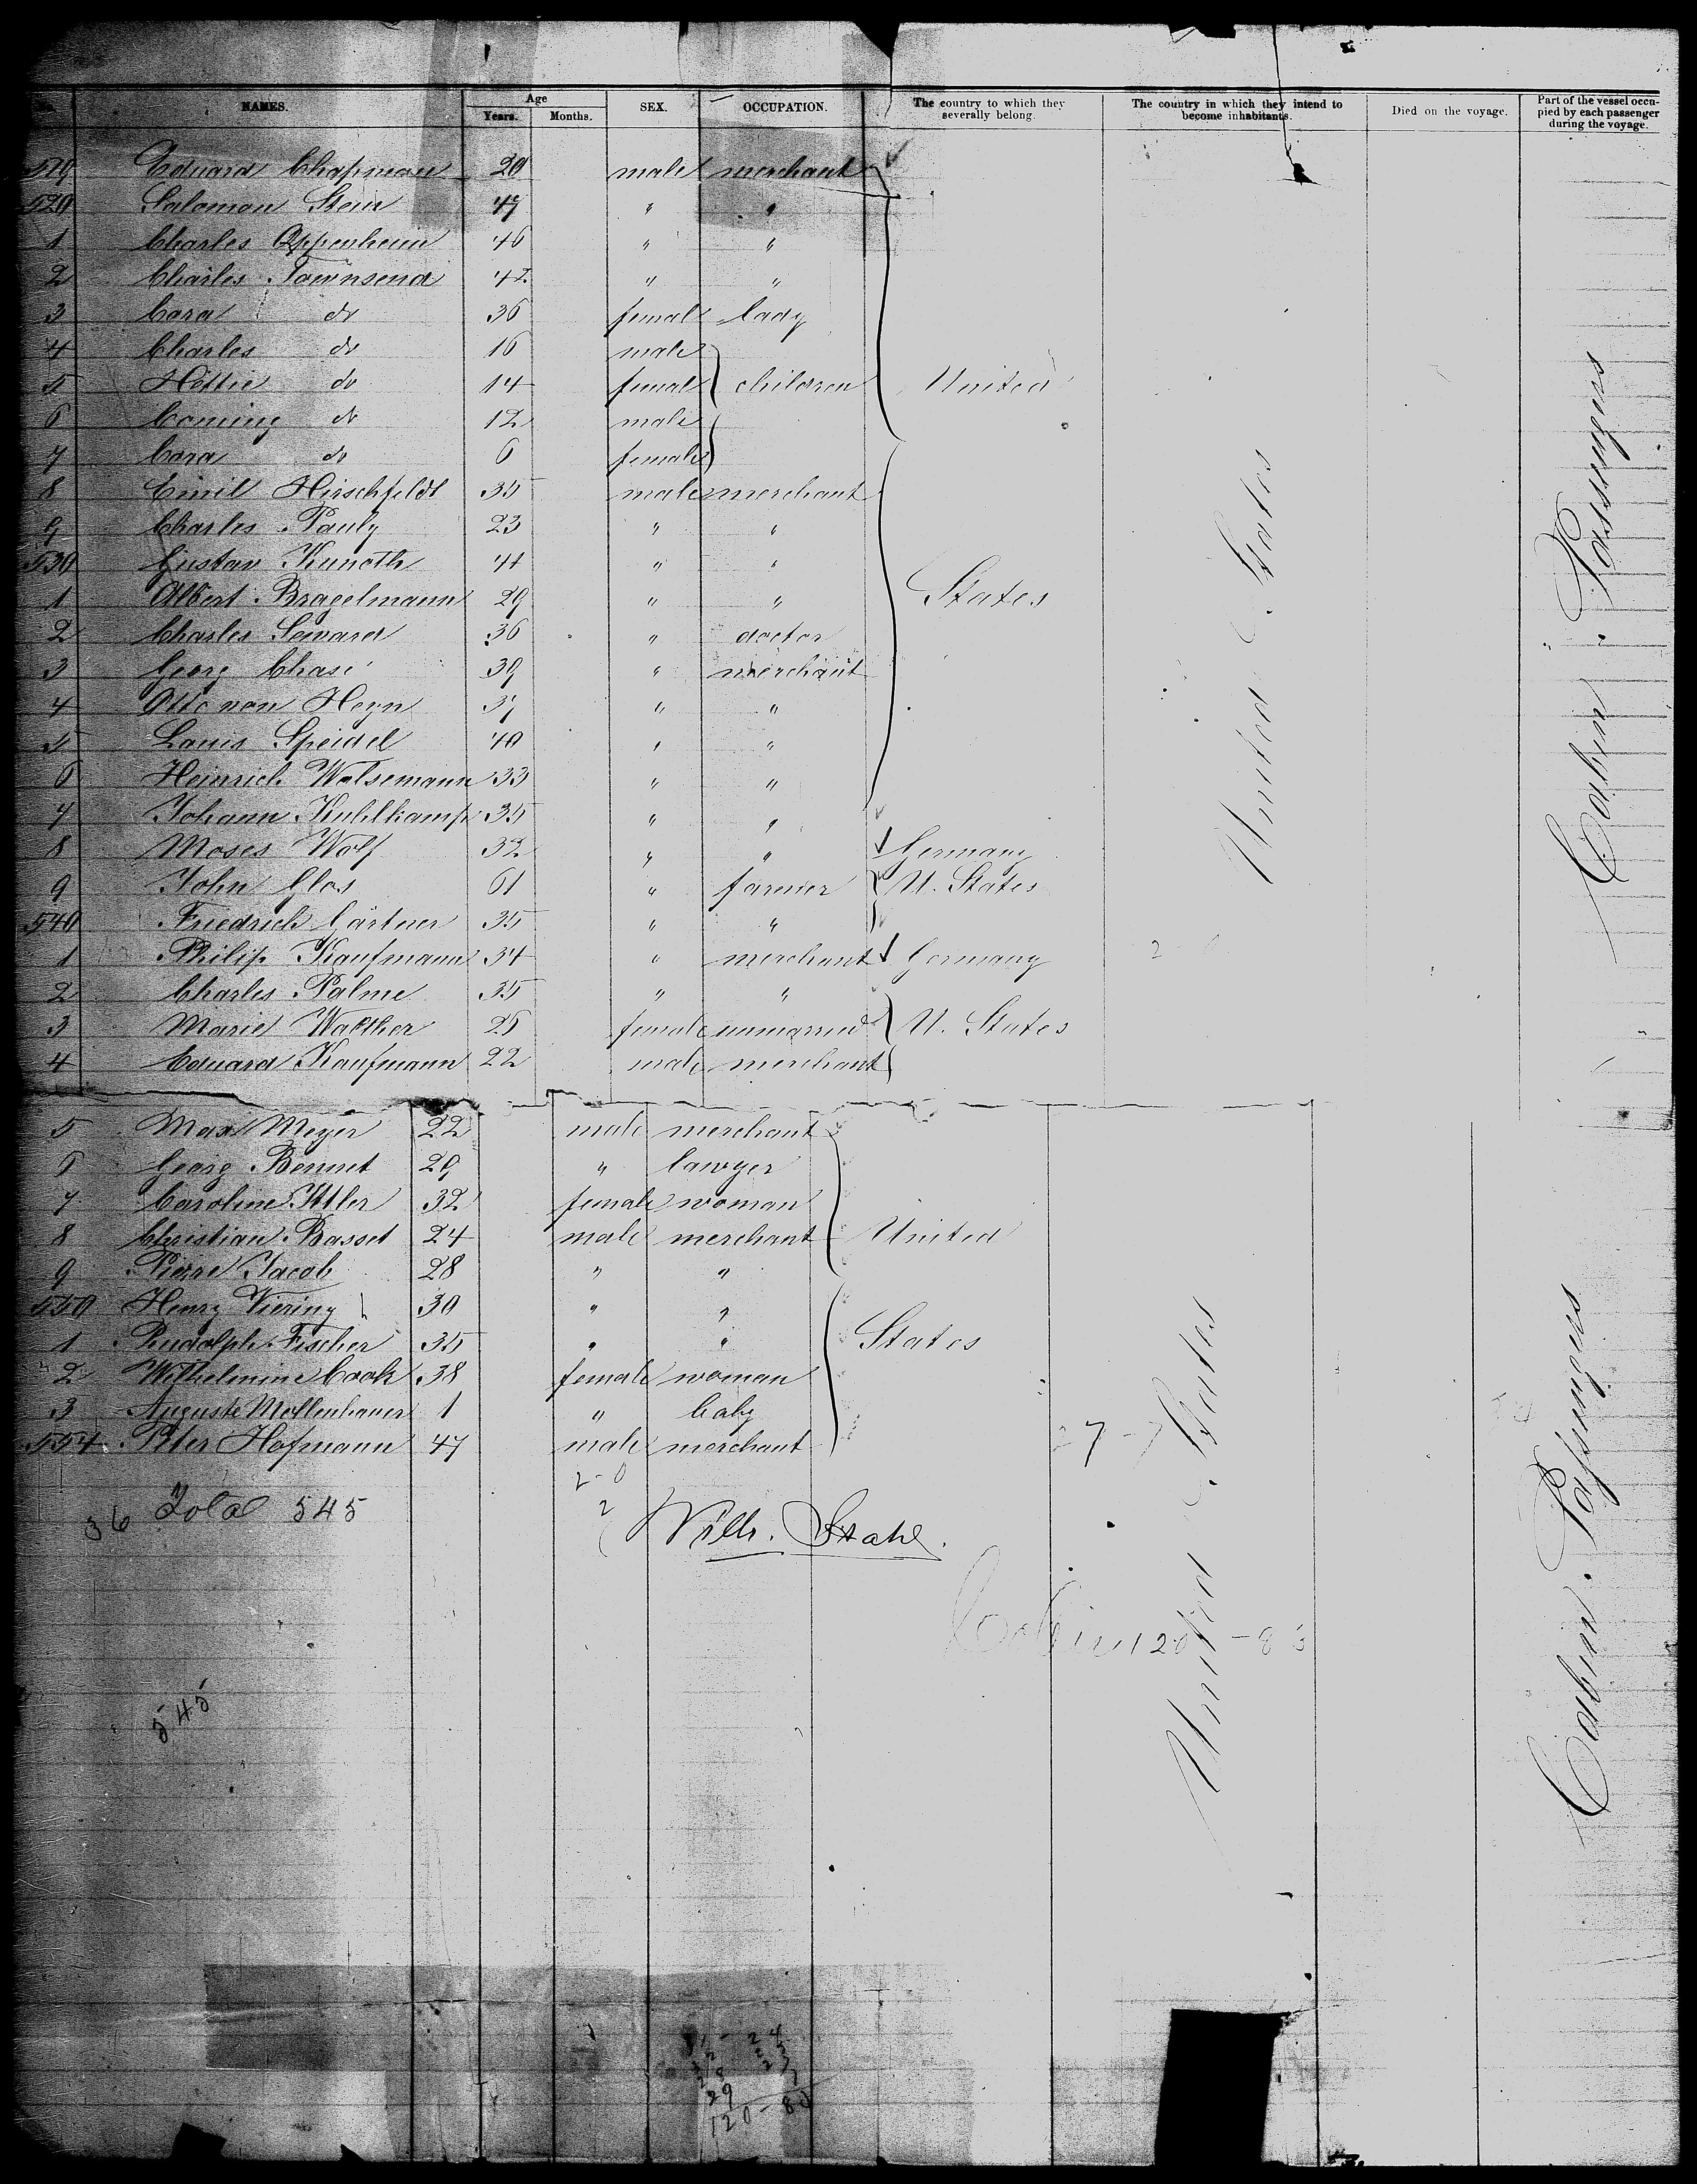 No. NAMES. Age Years. Months. SEX. OCCUPATION. The country to which they severally belong. The country in which they intend to become inhabitants. Died on the voyage. Part of the vessel occupied by each passenger during the voyage.
519 Eduard Chapman 20 male merchant
520 Salomon Stein 47 " "
1 Charles Oppenheim 46 " "
2 Charles Townsend 42 " "
3 Cora do 36 female lady
4 Charles do 16 male
5 Hettie do 14 female children United
6 Coming do 12 male
7 Cora do 6 female
8 Emil Hirschfeldt 35 male merchant
9 Charles Pauly 23 " "
530 Gustav Kunoth 41 " "
1 Albert Bragelmann 29 " " States
2 Charles Semard 36 " doctor
3 Georg Chase 39 " merchant
4 Otto von Heyn 37 " "
5 Louis Speidel 40 " "
6 Heinrich Walsemann 33 " "
7 Johann Kuhlkamp 35 " "
8 Moses Wolf 32 " " Germany
9 John Glos 61 " farmer U. States
540 Friedrich Gärtner 35 " "
1 Philip Kaufmann 34 " merchant Germany
2 Charles Palme 35 " "
3 Marie Walther 26 female unmarried U. States
4 Eduard Kaufmann 22 male merchant
United States
Cabin Passengers
5 Max Meyer 22 male merchant
6 Georg Bennet 29 " lawyer
7 Caroline Itler 32 female woman
8 Christian Basset 24 male merchant United
9 Pierre Jacob 28 " "
550 Henry Viering 30 " "
1 Rudolph Fischer 35 " " States
2 Wilhelmine Cook 38 female woman
3 Auguste Mollenhauer 1 " baby
554 Peter Hofmann 47 male merchant
27-7
2-0
36 Total 545
2
Willh. Stahl.
Cabin 120-83
United States
Cabin Passengers
545
29
120-83